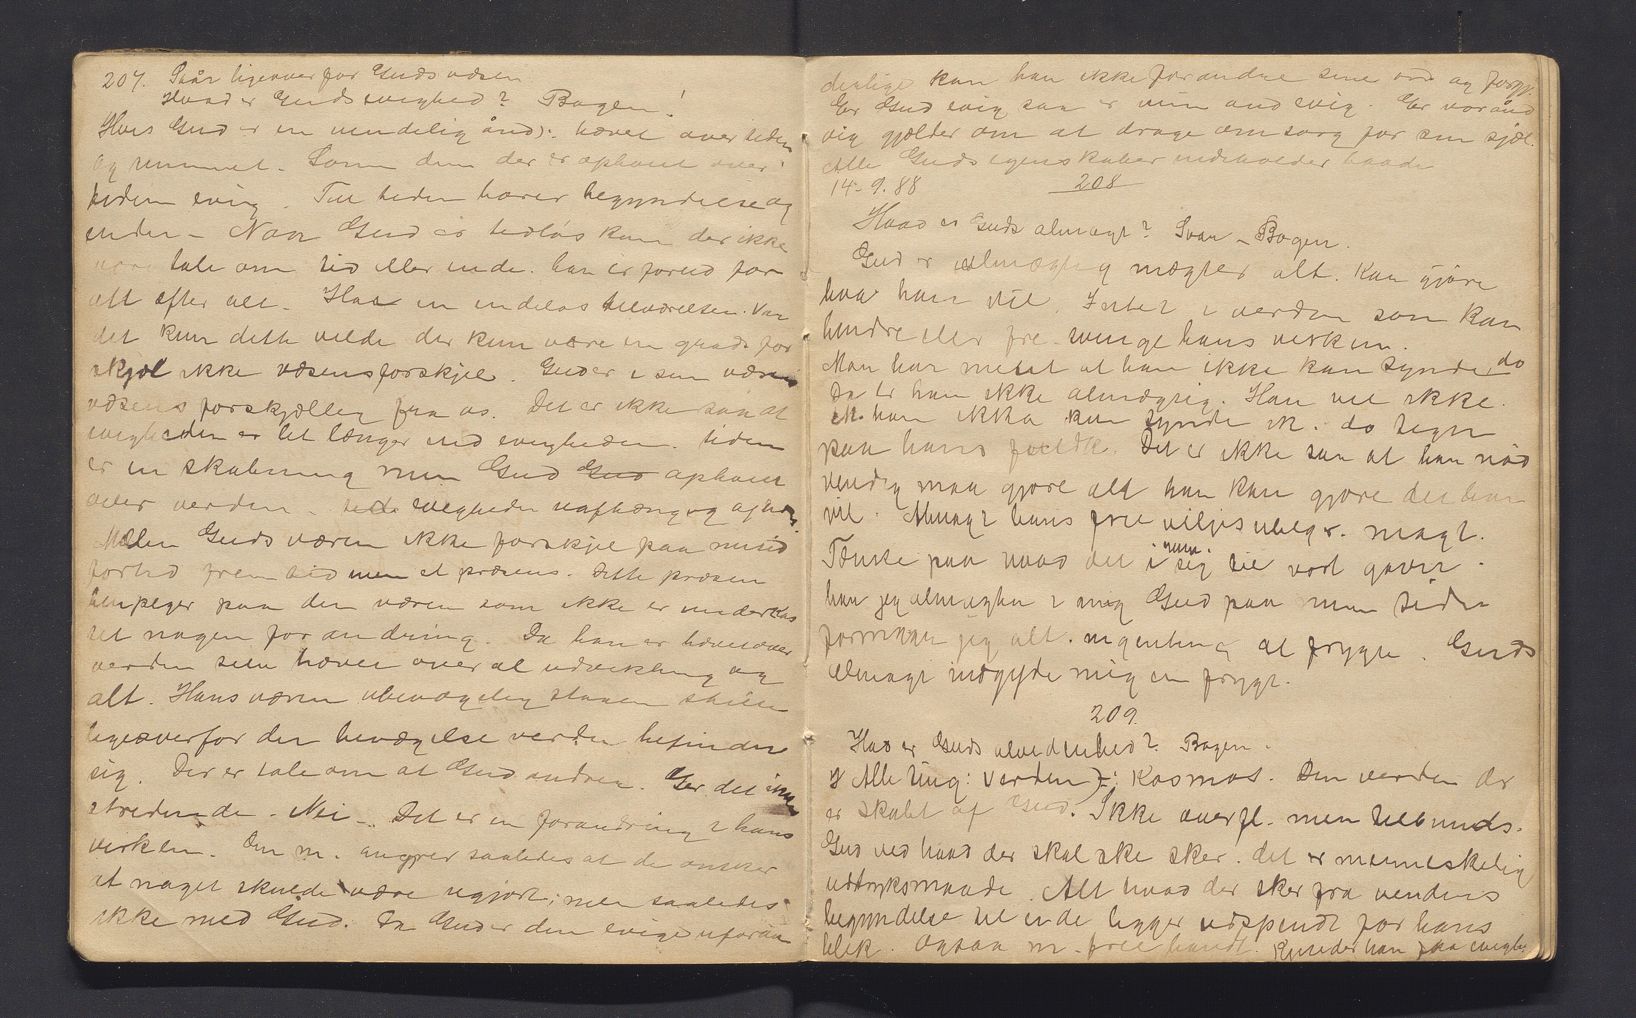 207. Svar ligeoverfor Guds væsen
Hvad er Guds evighed? Bogen!
Hvis Gud er en uendelig ånd ɔ: hævet over tiden
og rummet. Som den der er ophøiet over
tiden evig. Til tiden hører begyndelse og
ende – Naar Gud er tidløs kan der ikke
være tale om tid eller ende. han er forud for
alt efter alt. Har en endeløs tilværelsen. Var
det kun dette vilde der kun være en grads for
skjel ikke væsensforskjel. Gud er i sin væren
væsens forskjellig fra os. Det er ikke saa at
evigheden er lit længer end evigheden. tiden
er en skabning men Gud Gud ophøiet
over verden – evigheden uafhængig af
Mellem Guds væren ikke forskjel paa
fortid fremtid men et præsens. Dette præsen
henpeger paa den væren som ikke er underkas
tet nogen forandring. Da han er hævet over
verden selv hævet over al udvikling og
alt. Hans væren ubevægelig staaen stille
ligeoverfor den bevægelse verden befinder
sig. Der er tale om at Gud ændres. Er det
stridende. Nei – Det er en forandring i hans
virken. Den m. angrer saaledes at de ønsker
at noget skulde være ugjort; men saaledes
ikke med Gud. Da Gud er den evige uforan
derlige kan han ikke forandre sine ord og
Er Gud evig saa er min aand evig. Er vor ånd
evig gjælder om at drage omsorg for sin sjæl.
Alle Guds egenskaber indeholder baade
14-9.88 208
Hvad er Guds almagt? Svar – Bogen.
Gud er almægtig mægter alt. Kan gjøre
hva han vil. Intet i verden som kan
hindre eller tvinge hans virken.
Man har meint at han ikke kan synde do
Da er han ikke almægtig. Han vil ikke.
At han ikke kan synde er do tegn
paa hans. Det er ikke saa at han nød
vendig maa gjøre alt han kan gjøre det han
vil. Almagt hans frie viljes magt.
Tænke paa hvad det i sig til vort gavn.
har jeg almagten i mig Gud paa min side
formaar jeg alt. ingenting at frygte. Guds
almagt indgyde mig en frygt.
209.
Hvad er Guds alvidenhed? Bogen.
Alle ting: verden ɔ: Kosmos. Den verden der
er skabt af Gud. Ikke overfl. men tilbunds.
Gud ved hvad der skal ske sker. det er menneskelig
udtryksmaade. Alt hvad der sker fra verdens
begyndelse til ende ligger udspændt for hans
blik. Ogsaa m. frie handl. Kjender han fra evighe